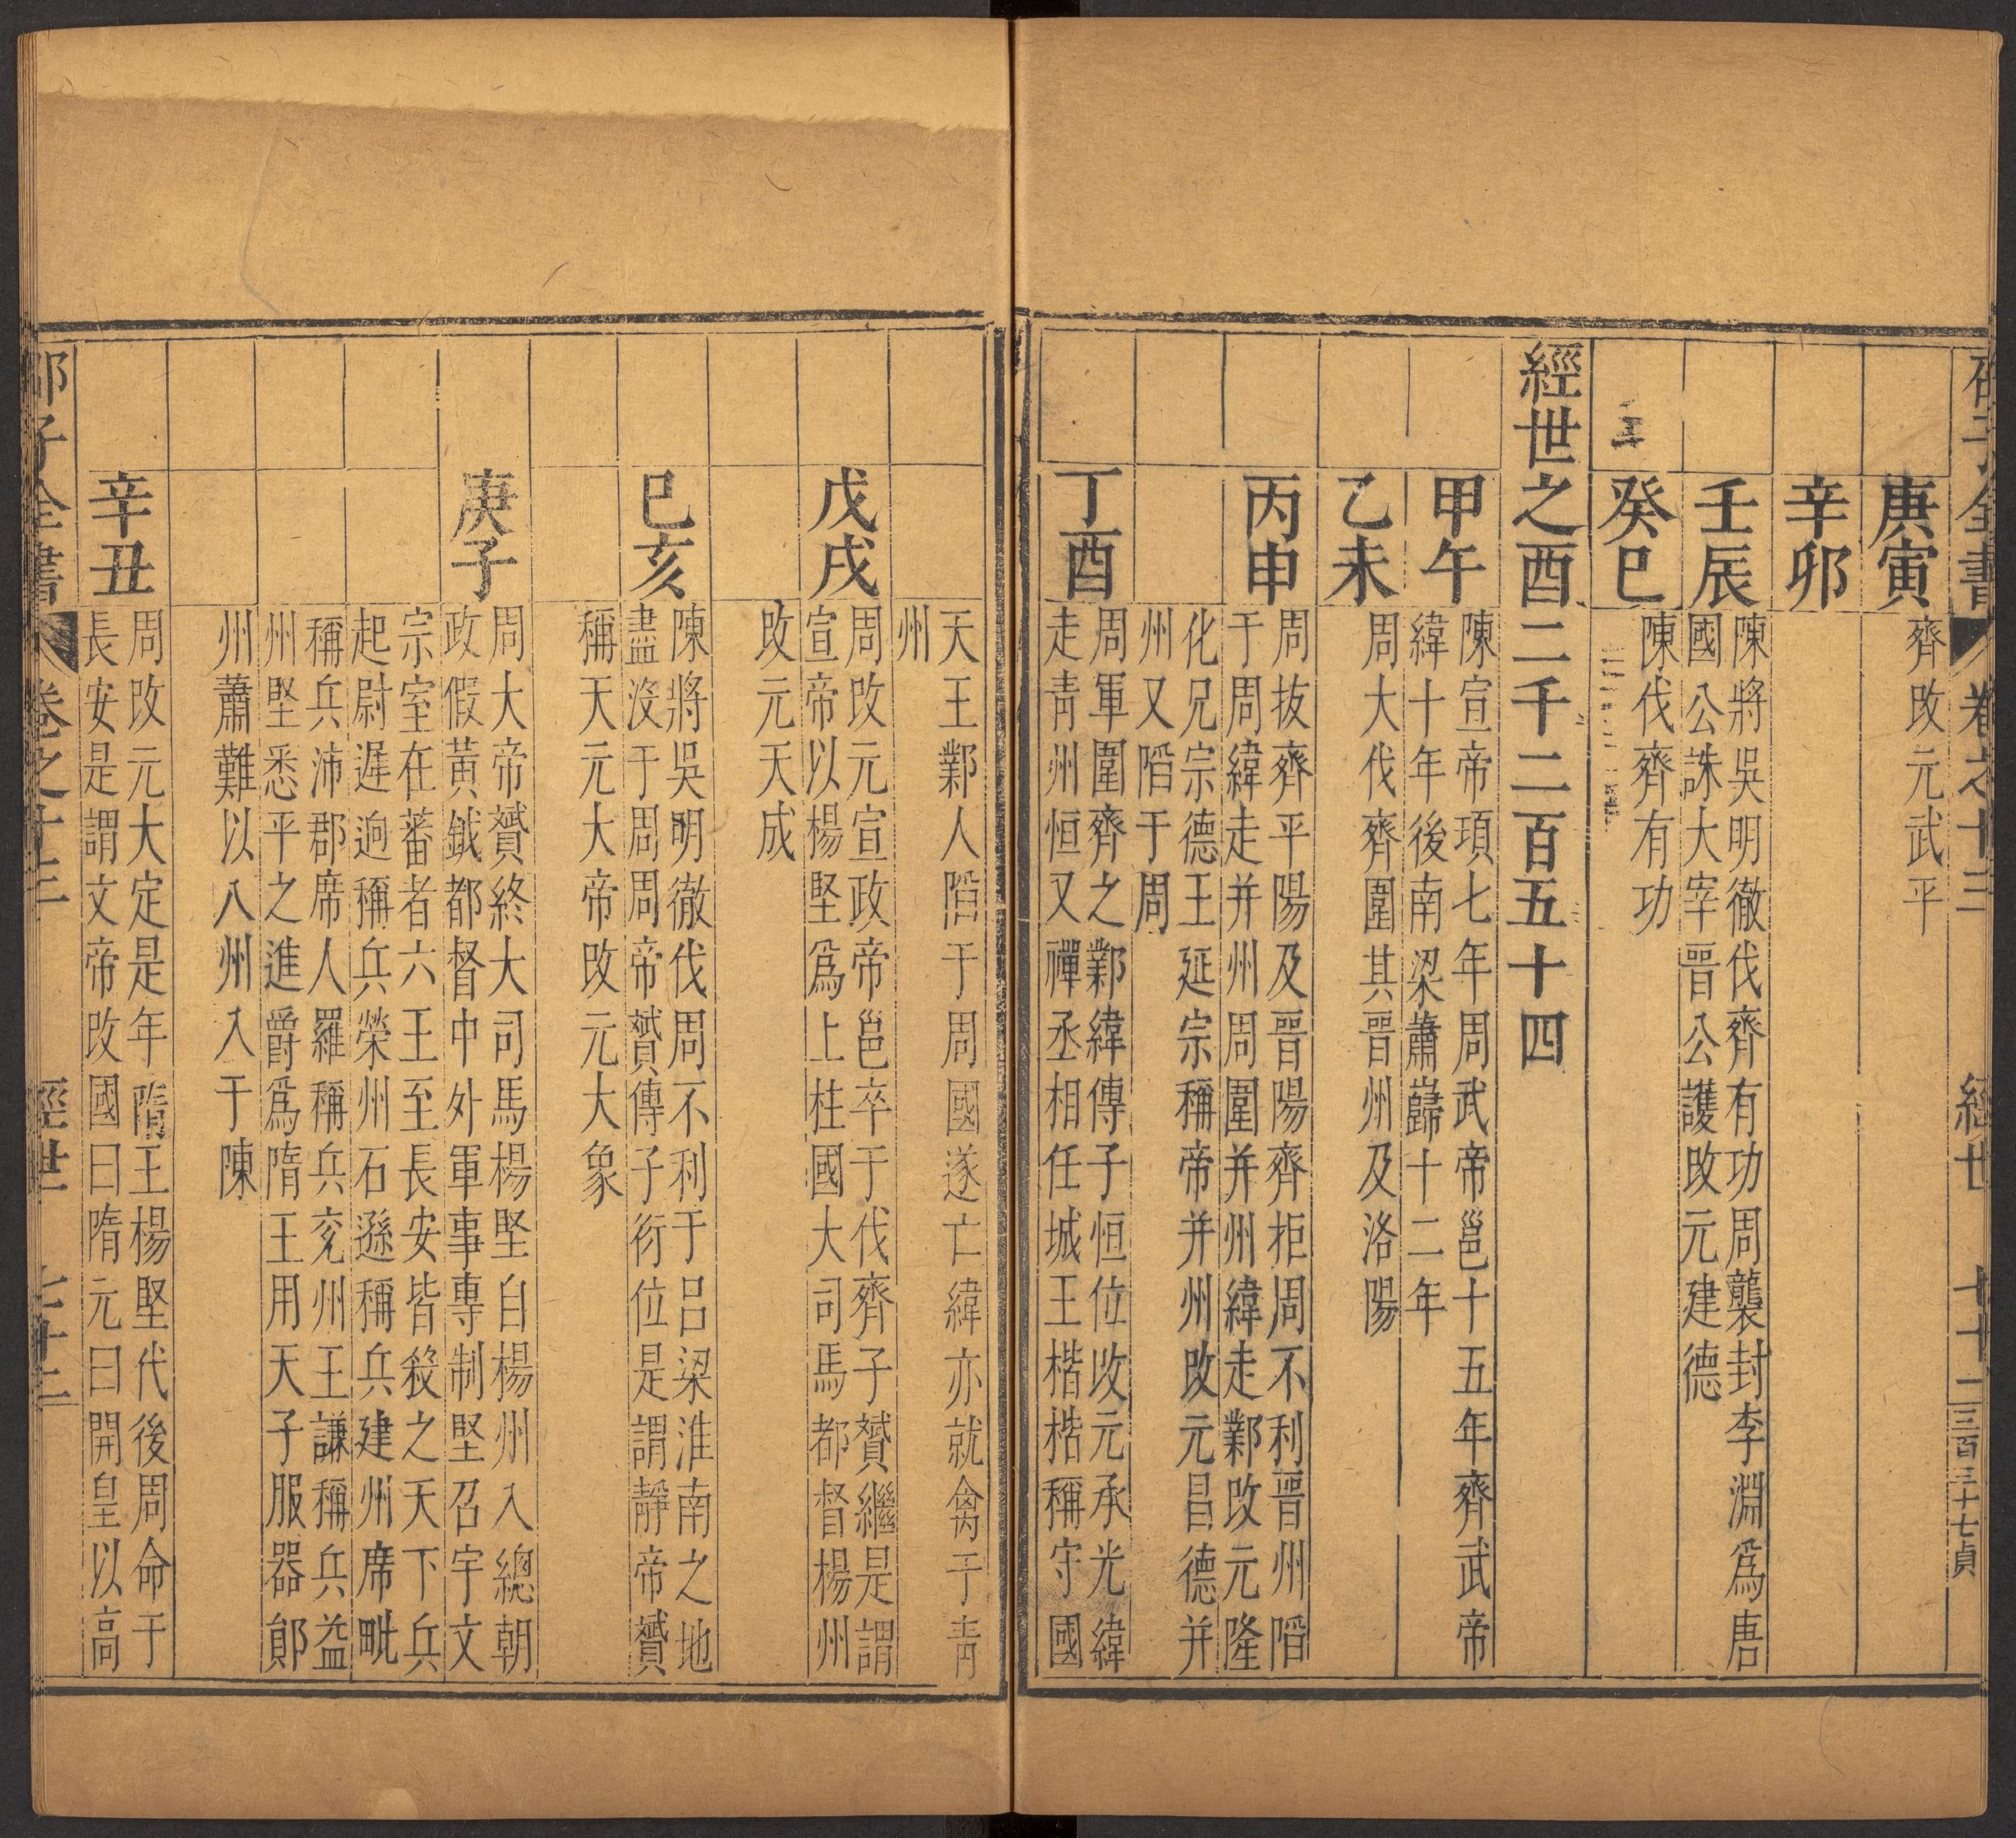 邵子全書 卷之十三 經世 七十二 三百三十七貞
庚寅
齊改元武平
辛卯
壬辰
陳將吳明徹伐齊有功周襲封李淵爲唐
國公誅大宰晋公護改元建德
癸巳
陳伐齊有功
經世之酉二千二百五十四
甲午
陳宣帝頊七年周武帝邕十五年齊武帝
緯十年後南梁蕭巋十二年
乙未
周大伐齊圍其晋州及洛陽
丙申
周拔齊平陽及晋陽齊拒周不利晋州䧟
于周緯走并州周圍并州緯走鄴改元隆
化兄宗德王延宗稱帝并州改元昌德并
州又䧟于周
丁酉
周軍圍齊之鄴緯傳子恒位攺元承光緯
走靑州恒又禪丞相任城王楷楷稱守國
天王鄴人䧟于周國遂亡緯亦就禽于靑
州
戊戌
周改元宣政帝邕卒于伐齊子贇繼是謂
宣帝以楊堅爲上柱國大司馬都督楊州
改元天成
己亥
陳將吳明徹伐周不利于呂梁淮南之地
盡沒于周周帝贇傳子衍位是謂靜帝贇
稱天元大帝改元大象
庚子
周大帝贇終大司馬楊堅自楊州入總朝
政假黃鉞都督中外軍事專制堅召宇文
宗室在蕃者六王至長安皆殺之天下兵
起尉遲逈稱兵榮州石遜稱兵建州席毗
稱兵沛郡席人羅稱兵兖州王謙稱兵益
州堅悉平之進爵爲隋王用天子服器鄖
州蕭難以八州入于陳
辛丑
周改元大定是年隋王楊堅代後周命于
長安是謂文帝改國曰隋元曰開皇以高
邵子全書 卷之十三 經世 七十二